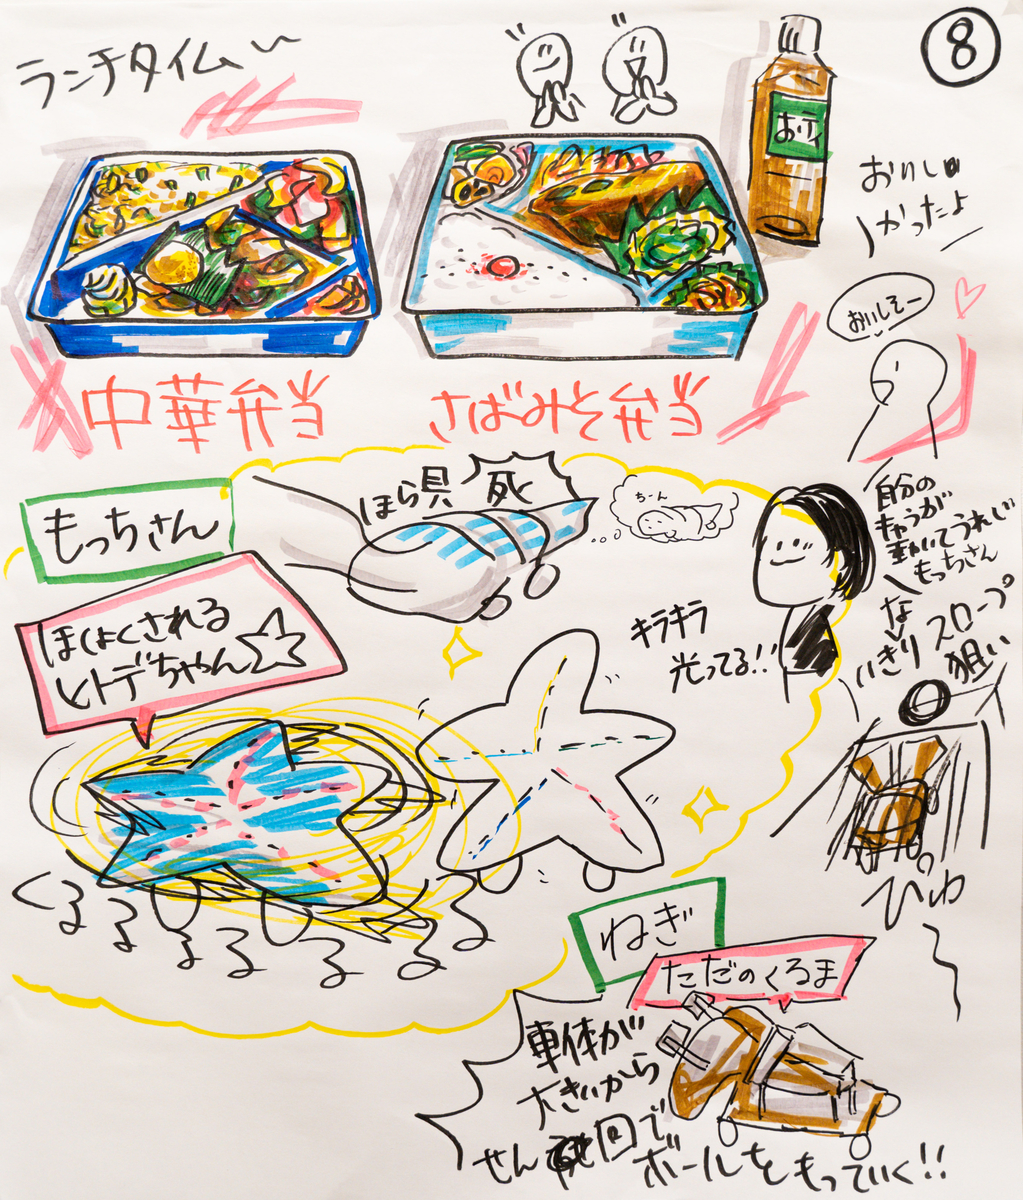 ランチタイム〜
8
お〜いお茶
おいし
かったよ
おいしそー
中華弁当
さばみそ弁当
もっちさん
ほら貝 死
ちーん
自分の
キャラが
動いてうれしい
もっちさん
なぐり
スロープ
狙い
ほしょくされる
ヒトデちゃん☆
キラキラ
光ってる!!
くるるるるるるる
ひゅ〜
ねぎ
ただのくるま
車体が
大きいから
せん回で
ボールをもっていく!!